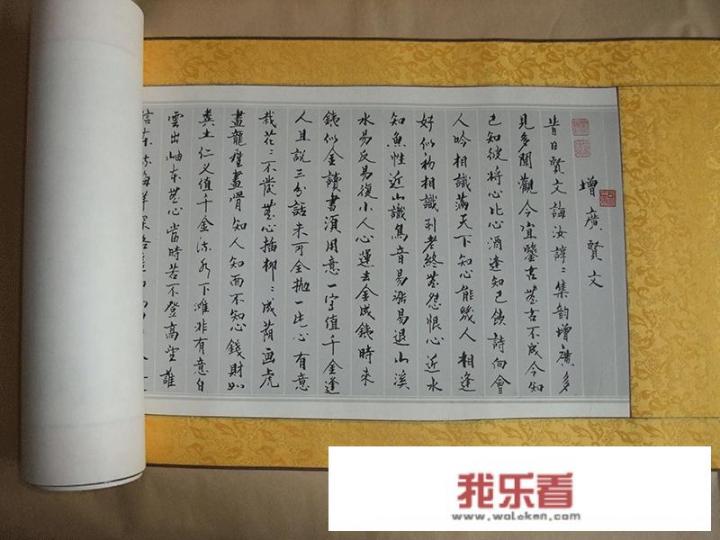 增廣賢文
昔日賢文誨汝諄〻集韵增廣多
見多聞觀今宜鑒古無古不成今知
己知彼將心比心酒逢知己飲詩向會
人吟相識滿天下知心能幾人相逢
好似初相識到老終無怨恨心近水
知魚性近山識鳥音易漲易退山溪
水易反易復小人心運去金成鐵時來
鐵似金讀書須用意一字值千金逢
人且説三分話未可全拋一片心有意
栽花〻不發無心插柳〻成蔭画虎
畫龍難畫骨知人知面不知心錢財如
糞土仁义值千金流水下灘非有意白
雲出岫本無心當時若不登高望誰
信東流海洋深
我乐看
www.woloken.com